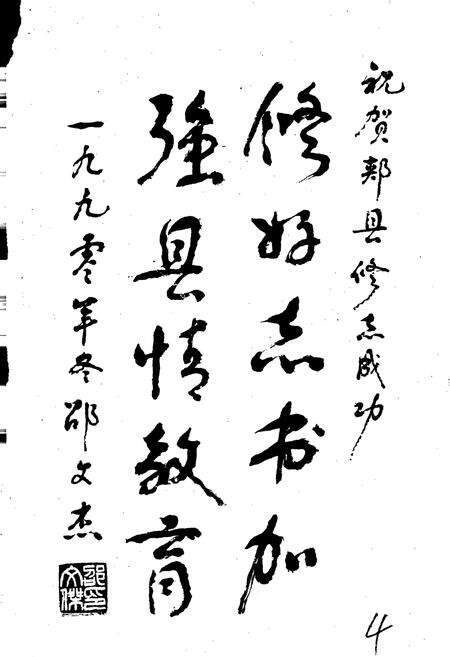 祝贺郏县修志成功
修好志书加
强县情教育
一九九零年冬邵文杰
邵文杰印
4